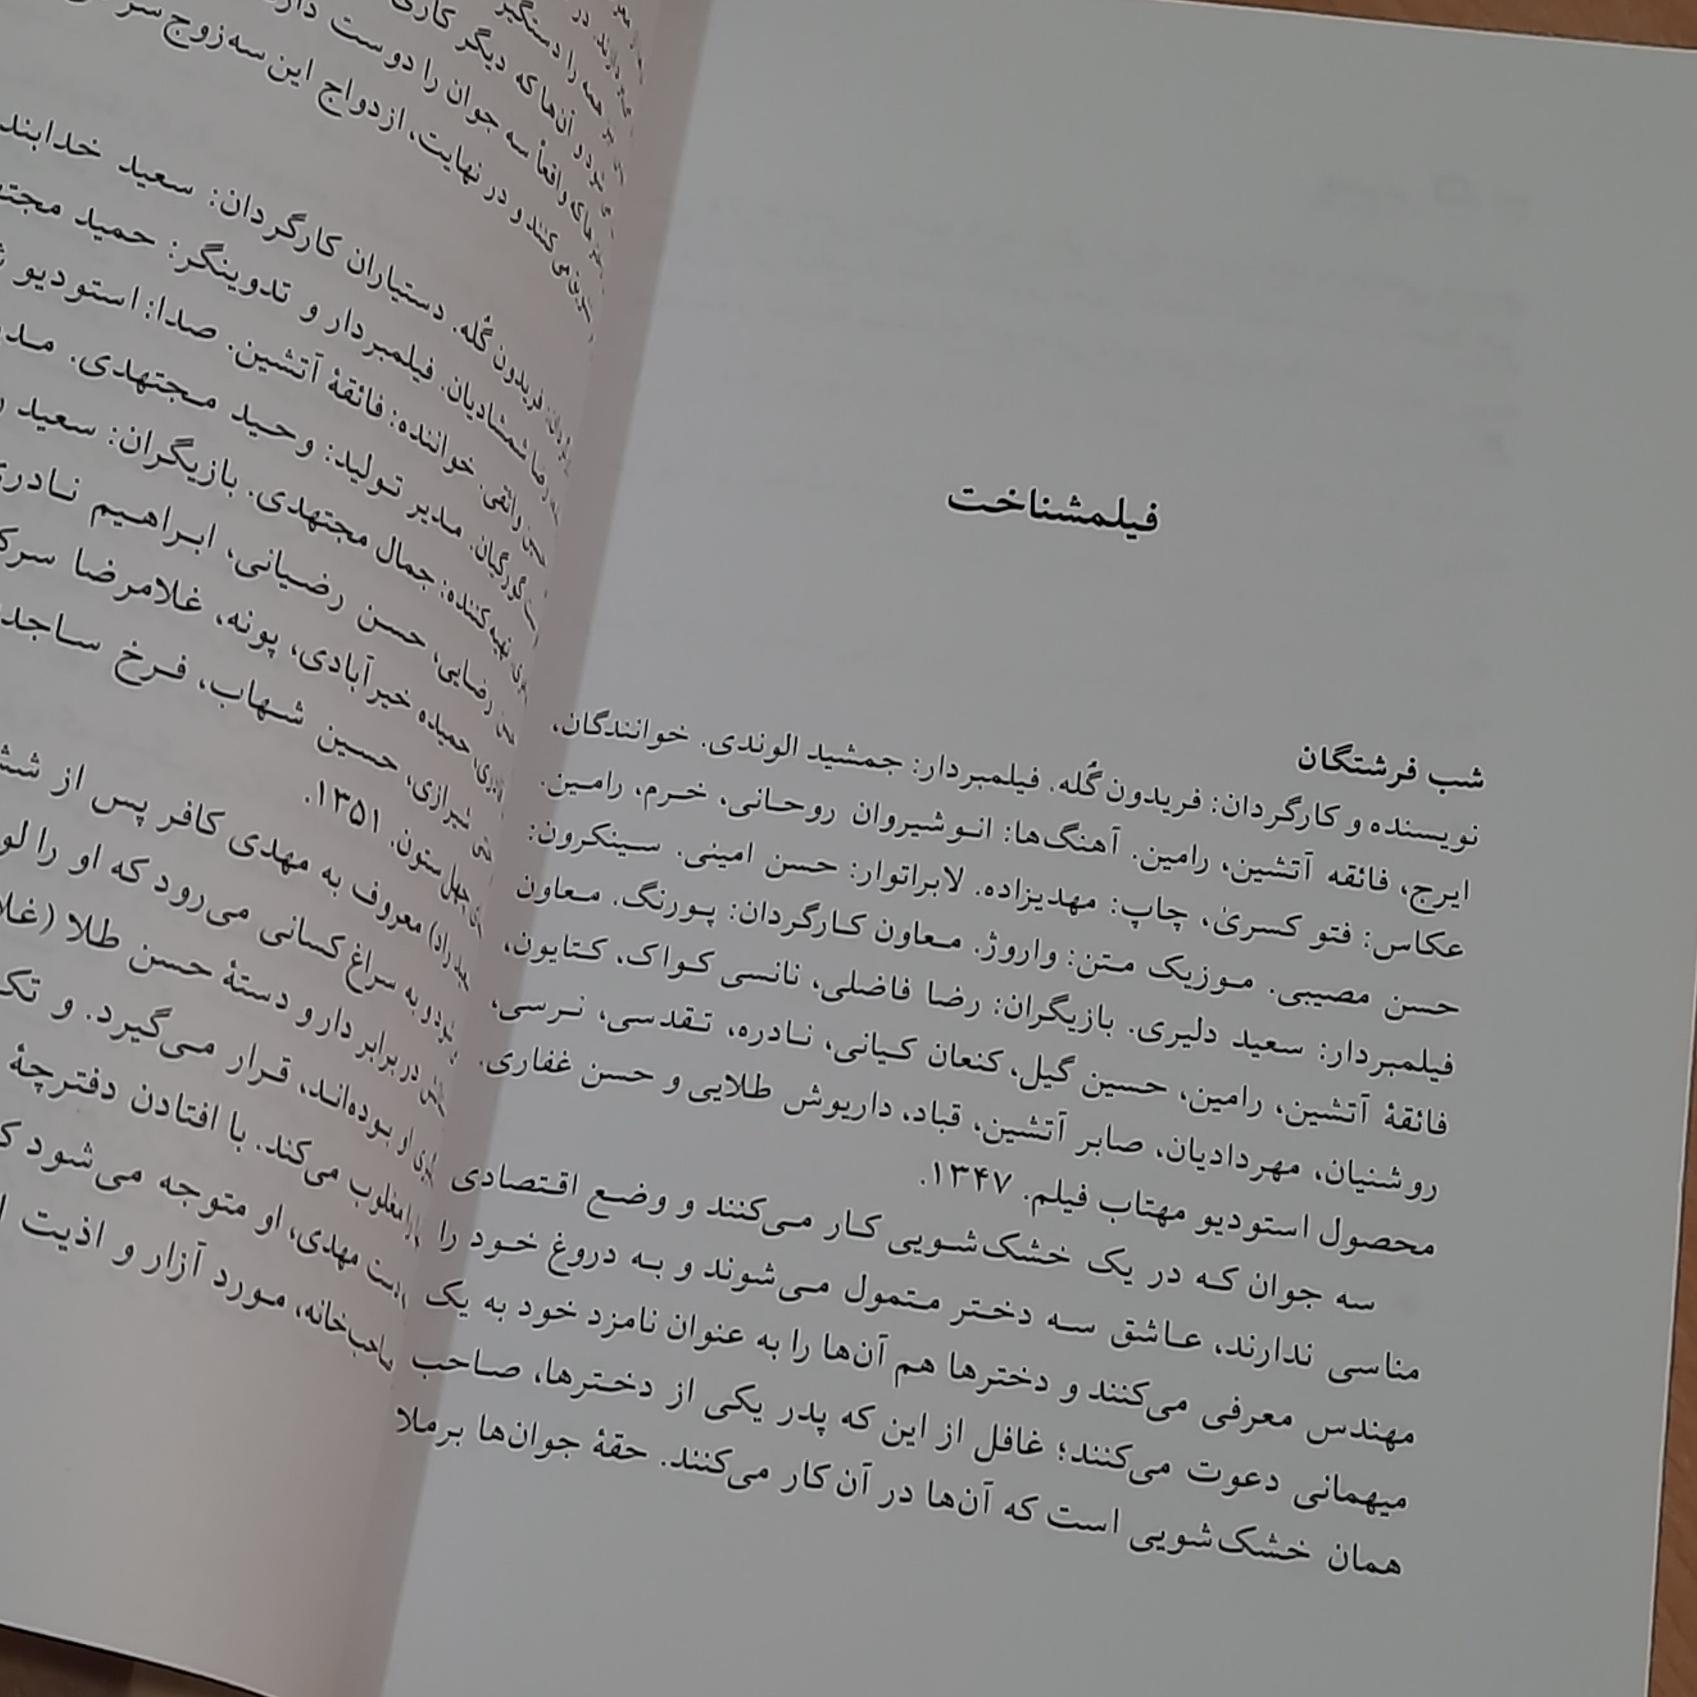 فیلمشناخت
شب فرشتگان
نویسنده و کارگردان: فریدون گُله. فیلمبردار: جمشید الوندی. خوانندگان،
ایرج، فائقه آتشین، رامین. آهنگ‌ها: انوشیروان روحانی، خرم، رامین.
عکاس: فتو کسریٰ، چاپ: مهدیزاده. لابراتوار: حسن امینی. سینکرون:
حسن مصیبی. موزیک متن: واروژ. معاون کارگردان: پورنگ. معاون
فیلمبردار: سعید دلیری. بازیگران: رضا فاضلی، نانسی کواک، کتایون،
فائقهٔ آتشین، رامین، حسین گیل، کنعان کیانی، نادره، تقدسی، نرسی،
روشنیان، مهردادیان، صابر آتشین، قباد، داریوش طلایی و حسن غفاری.
محصول استودیو مهتاب فیلم. ۱۳۴۷.
سه جوان که در یک خشک‌شویی کار می‌کنند و وضع اقتصادی
مناسی ندارند، عاشق سه دختر متمول می‌شوند و به دروغ خود را
مهندس معرفی می‌کنند و دخترها هم آن‌ها را به عنوان نامزد خود به یک
میهمانی دعوت می‌کنند؛ غافل از این که پدر یکی از دخترها، صاحب
همان خشک‌شویی است که آن‌ها در آن کار می‌کنند. حقهٔ جوان‌ها برملا
همه را دستگیر
آن‌ها که دیگر
واقعاً سه جوان را دوست
و در نهایت، ازدواج این سه زوج سر
فریدون گُله. دستیاران کارگردان: سعید
شمشادیان. فیلمبردار و تدوینگر: حمید
واثقی. خواننده: فائقهٔ آتشین. صدا: استودیو
گورگیان. مدیر تولید: وحید مجتهدی.
تهیه‌کننده: جمال مجتهدی. بازیگران: سعید
رضایی، حسن رضیانی، ابراهیم
حمیده خیرآبادی، پونه، غلامرضا
شیرازی، حسین شهاب، فرخ
چهل ستون. ۱۳۵۱.
معروف به مهدی کافر پس از
و به سراغ کسانی می‌رود که او را
در برابر دار و دستهٔ حسن طلا
او بوده‌اند، قرار می‌گیرد. و
مغلوب می‌کند. با افتادن دفترچهٔ
مهدی، او متوجه می‌شود
صاحب‌خانه، مورد آزار و اذیت